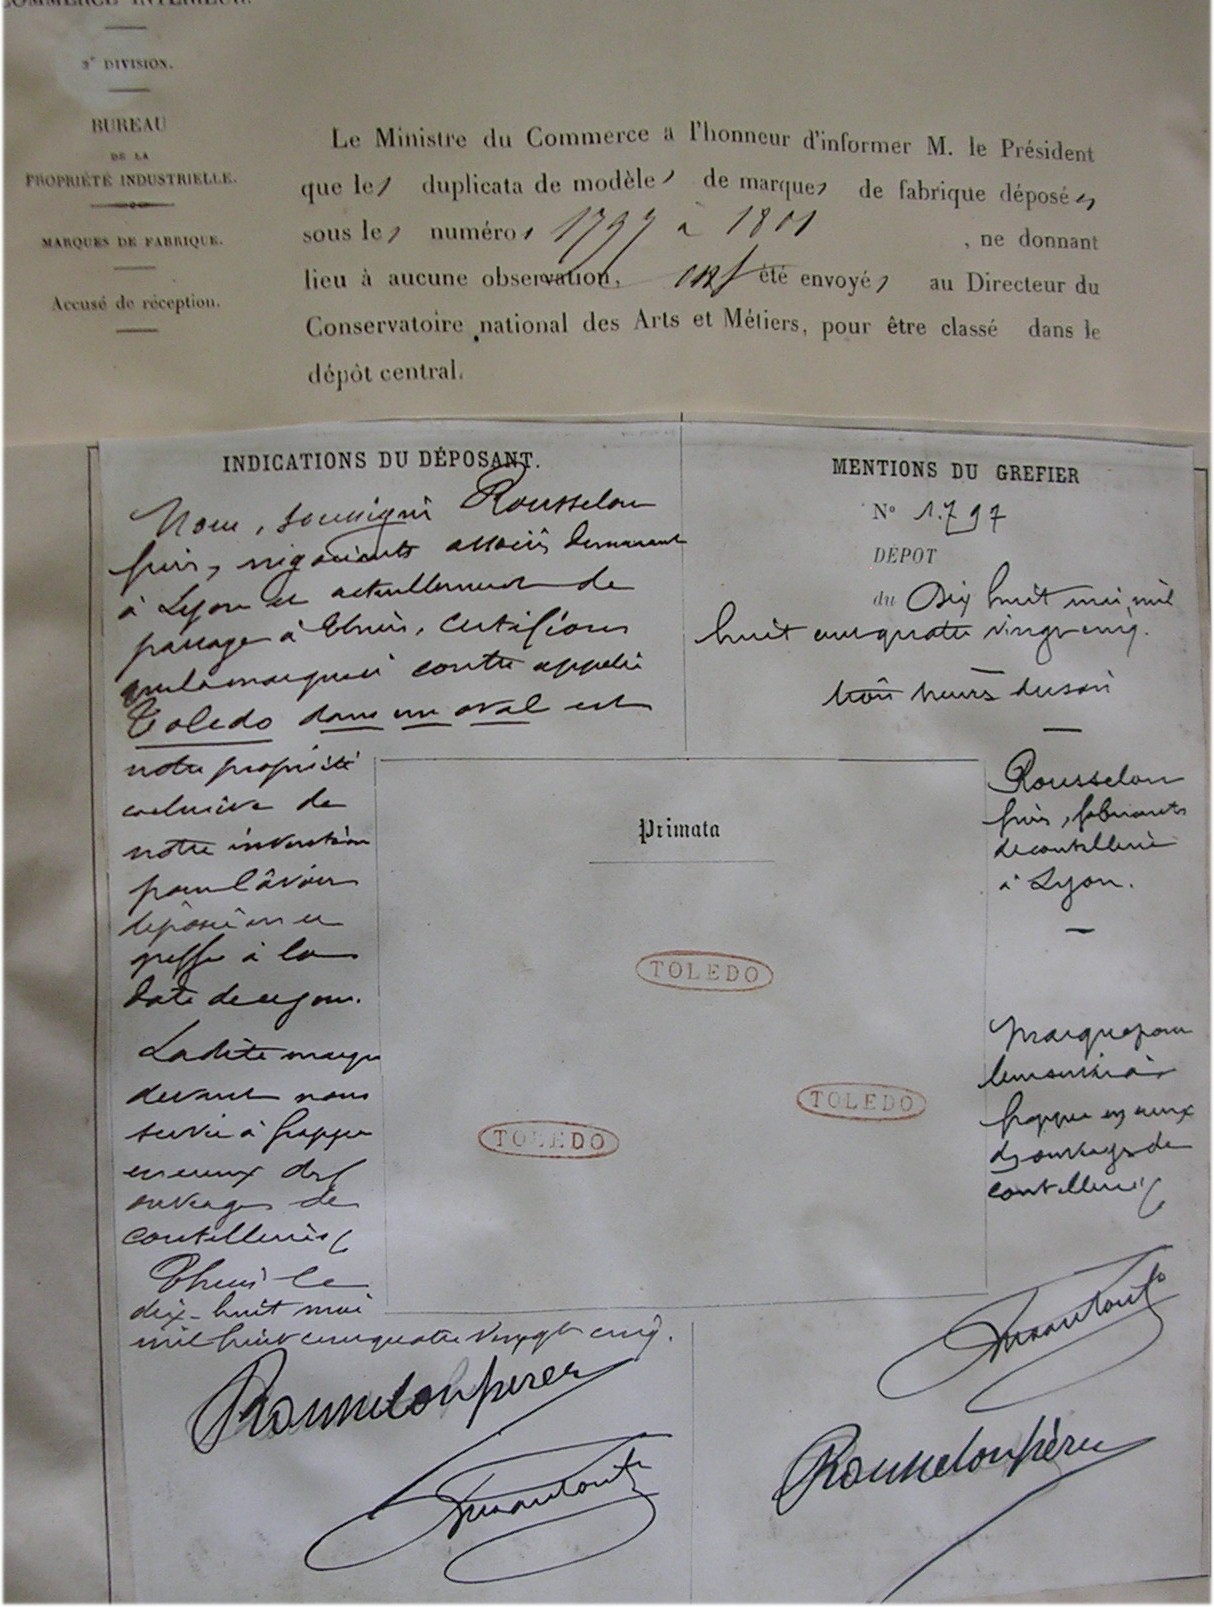 COMMERCE INTÉRIEUR.
2e DIVISION.
BUREAU
DE LA
PROPRIÉTÉ INDUSTRIELLE.
MARQUES DE FABRIQUE.
Accusé de réception.
Le Ministre du Commerce a l'honneur d'informer M. le Président
que les duplicata de modèles de marques de fabrique déposés
sous les numéros 1797 à 1801 , ne donnant
lieu à aucune observation, ont été envoyés au Directeur du
Conservatoire national des Arts et Métiers, pour être classé dans le
dépôt central.
INDICATIONS DU DÉPOSANT.
Nous, soussignés Rousselon
frères, négociants associés demeurant
à Lyon et actuellement de
passage à Thiers, certifions
que la marque ci contre appelée
Toledo dans un oval est
notre propriété
exclusive de
notre invention
pour l'avoir
déposée en ce
greffe à la
date de ce jour.
La dite marque
devant nous
servir à frapper
en creux des
ouvrages de
coutelleries
Thiers le
dix-huit mai
mil huit cent quatre vingt cinq.
Rousselon frères
MENTIONS DU GREFIER
No 1.797
DÉPOT
du Dix huit mai mil
huit cent quatre vingt cinq.
trois heures du soir
Primata
TOLEDO
TOLEDO
TOLEDO
Rousselon
frères, fabricants
de coutellerie
à Lyon.
Marque pour
leur servir à
frapper en creux
des ouvrages de
coutelleries
Rousselon frères